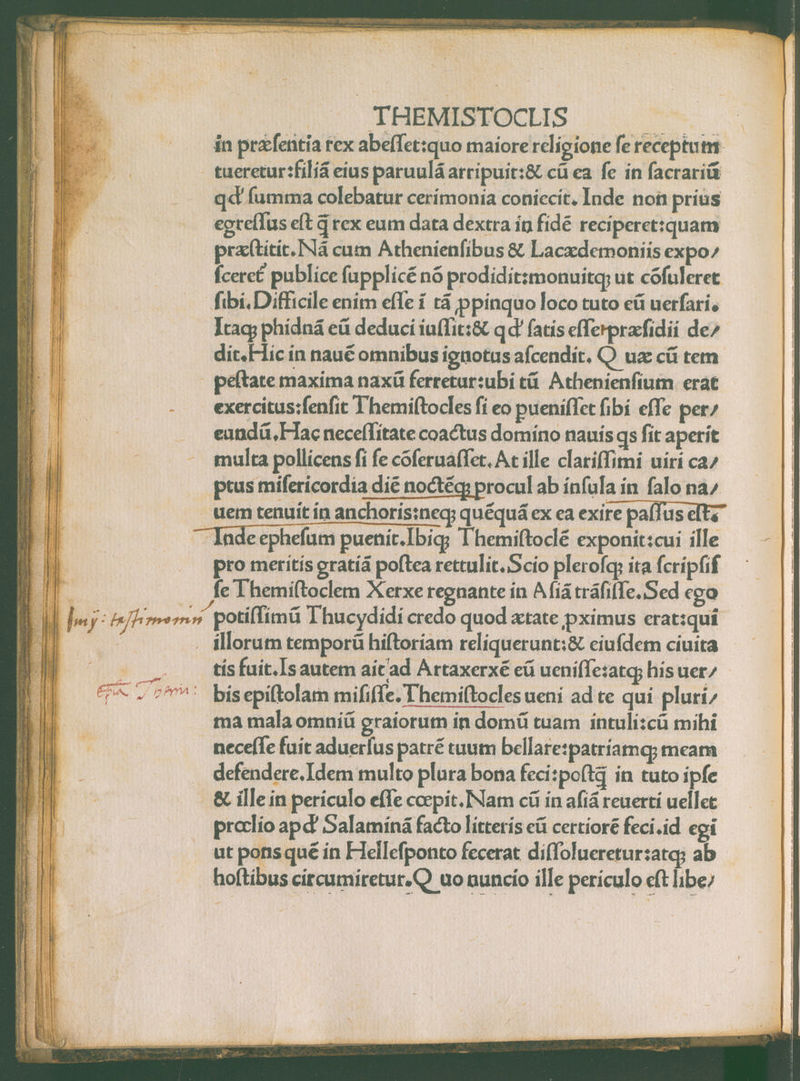 THEMISTOCLIS
in præsentia rex abesset:quo maiore religione se receptum
tueretur:filiā eius paruulā arripuit:& cū ea se in sacrariū
qđ summa colebatur cerimonia coniecit. Inde non prius
egressus est q̄ rex eum data dextra in fidē reciperet:quam
præstitit. Nā cum Atheniensibus & Lacædemoniis expo/
sceret̄ publice supplicē nō prodidit:monuitq; ut cōsuleret
sibi. Difficile enim esse ī tā ꝓpinquo loco tuto eū uersari.
Itaq; phidnā eū deduci iussit:& qđ satis esset præsidii de/
dit. Hic in nauē omnibus ignotus ascendit. Quæ cū tem
pestate maxima naxū ferretur:ubi tū Atheniensium erat
exercitus:sensit Themistocles si eo puenisset sibi esse per/
eundū. Hac necessitate coactus domino nauis qs sit aperit
multa pollicens si se cōseruasset. At ille clarissimi uiri ca/
ptus misericordia diē noctēq; procul ab insula in salo na/
uem tenuit in anchoris:neq; quēquā ex ea exire passus est.
Inde ephesum puenit. Ibiq; Themistoclē exponit:cui ille
pro meritis gratiā postea rettulit. Scio plerosq; ita scripsis
se Themistoclem Xerxe regnante in Asiā trāsisse. Sed ego
potissimū Thucydidi credo quod ætate ꝓximus erat:qui
illorum temporū historiam reliquerunt:& eiusdem ciuita
tis fuit. Is autem ait ad Artaxerxē eū uenisse:atq; his uer/
bis epistolam misisse. Themistocles ueni ad te qui pluri/
ma mala omniū graiorum in domū tuam intuli:cū mihi
necesse fuit aduersus patrē tuum bellare:patriamq; meam
defendere. Idem multo plura bona feci:postq̄ in tuto ipse
& ille in periculo esse cœpit. Nam cū in asiā reuerti uellet
prœlio apđ Salaminā facto litteris eū certiorē feci. id egi
ut pons quē in Hellesponto fecerat dissolueretur:atq; ab
hostibus circumiretur. Quo nuncio ille periculo est libe/